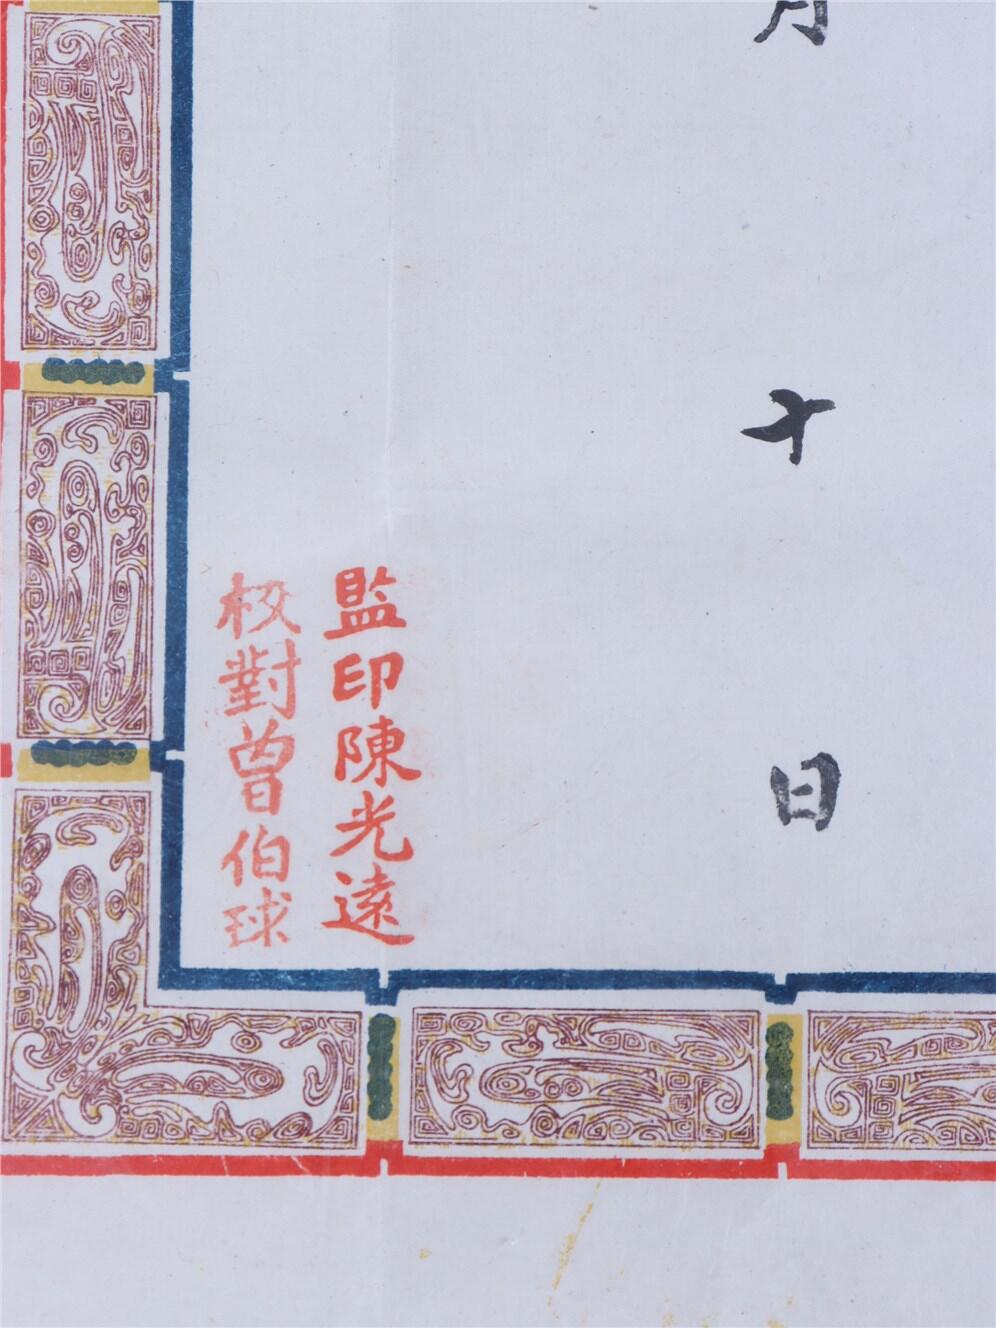 月十日
監印陳光遠
校對曾伯球